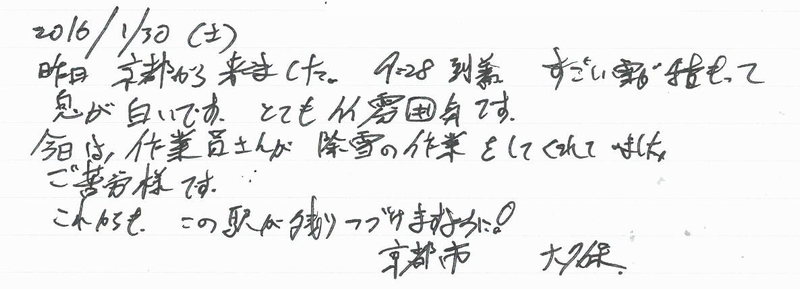 2016/1/30（土）
昨日 京都から来ました。 9:28 到着 すごい雪が積もって
息が白いです。 とてもいい雰囲気です。
今日は、作業員さんが 除雪の作業をしてくれてました。
ご苦労様です。
これからも、この駅が残りつづけますように。!
京都市 大久保.